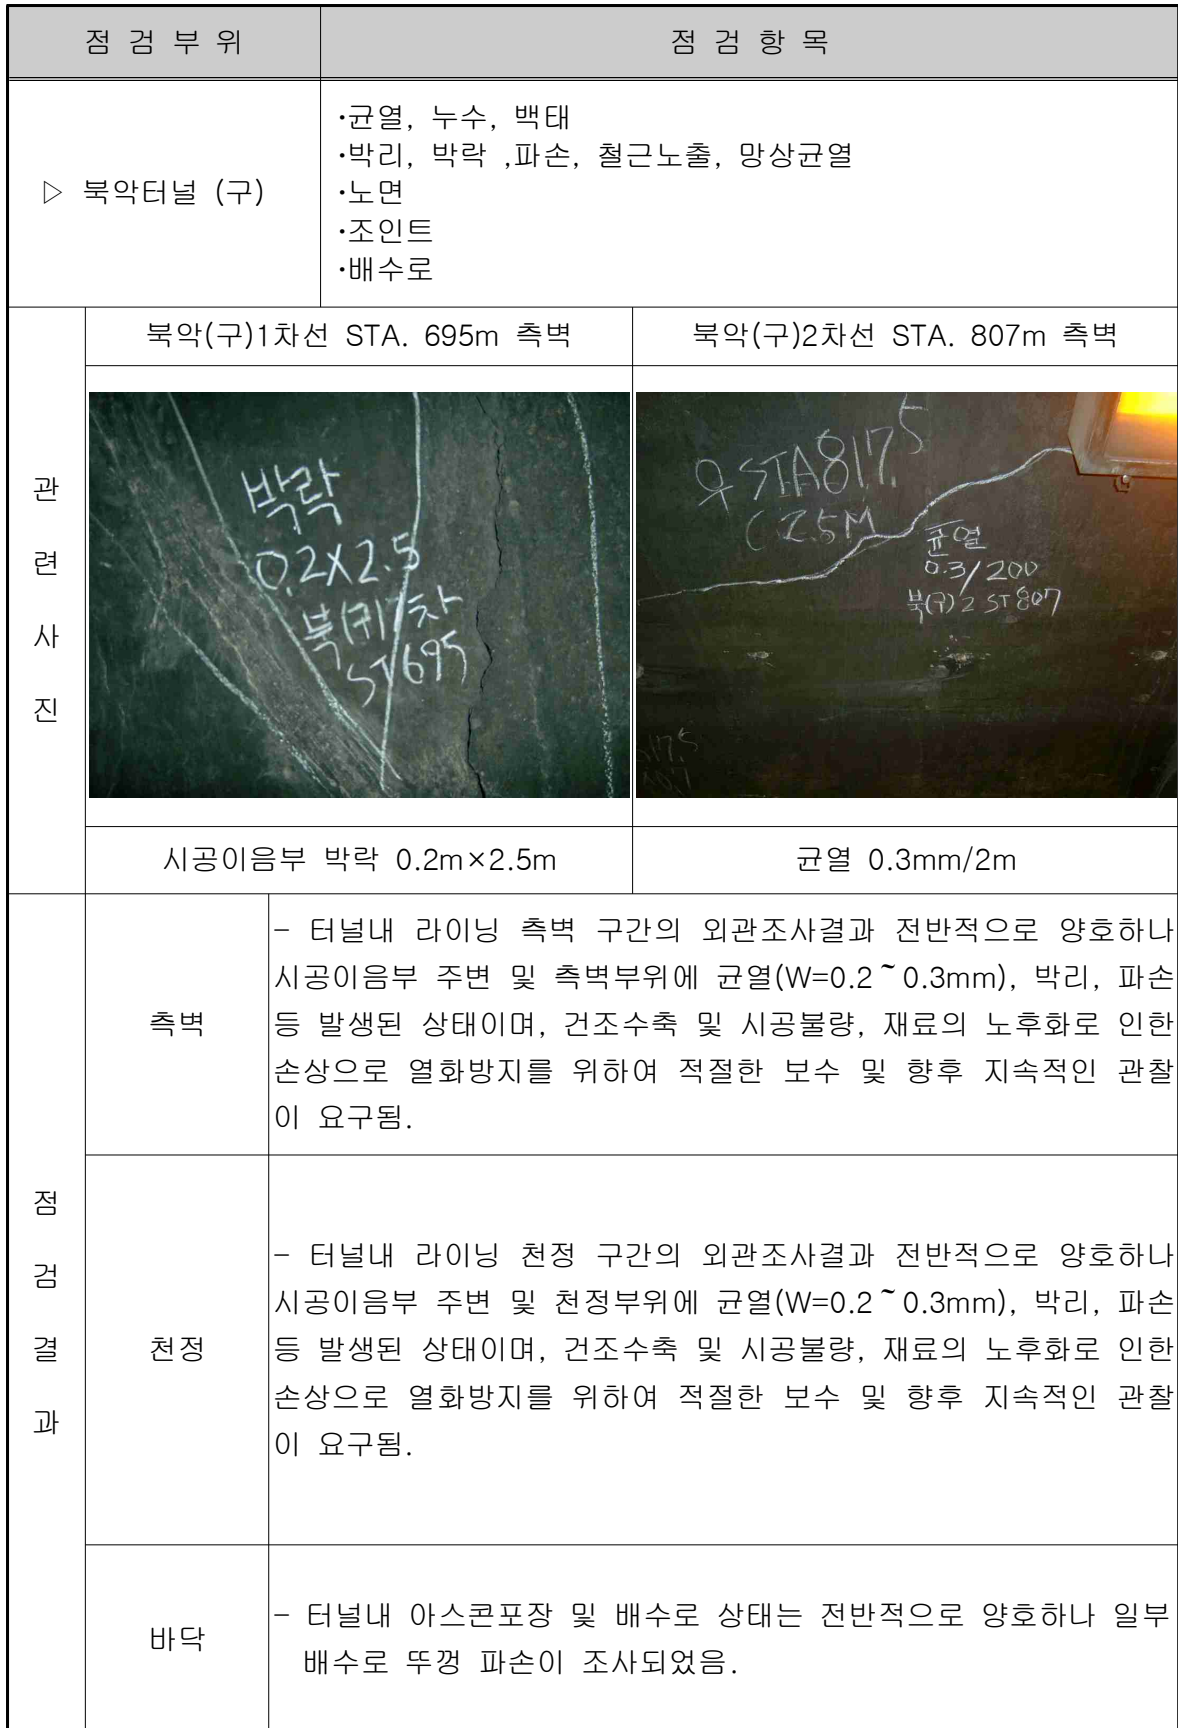 점 검 부 위
점 검 항 목
▷ 북악터널 (구)
·균열, 누수, 백태
·박리, 박락 ,파손, 철근노출, 망상균열
·노면
·조인트
·배수로
관
련
사
진
북악(구)1차선 STA. 695m 측벽
북악(구)2차선 STA. 807m 측벽
박락
0.2X2.5
북(구)1차
ST695
우 STA817.5
C 2.5M
균열
0.3/200
북(구) 2 ST 807
시공이음부 박락 0.2m×2.5m
균열 0.3mm/2m
점
검
결
과
측벽
- 터널내 라이닝 측벽 구간의 외관조사결과 전반적으로 양호하나
시공이음부 주변 및 측벽부위에 균열(W=0.2~0.3mm), 박리, 파손
등 발생된 상태이며, 건조수축 및 시공불량, 재료의 노후화로 인한
손상으로 열화방지를 위하여 적절한 보수 및 향후 지속적인 관찰
이 요구됨.
천정
- 터널내 라이닝 천정 구간의 외관조사결과 전반적으로 양호하나
시공이음부 주변 및 천정부위에 균열(W=0.2~0.3mm), 박리, 파손
등 발생된 상태이며, 건조수축 및 시공불량, 재료의 노후화로 인한
손상으로 열화방지를 위하여 적절한 보수 및 향후 지속적인 관찰
이 요구됨.
바닥
- 터널내 아스콘포장 및 배수로 상태는 전반적으로 양호하나 일부
배수로 뚜껑 파손이 조사되었음.